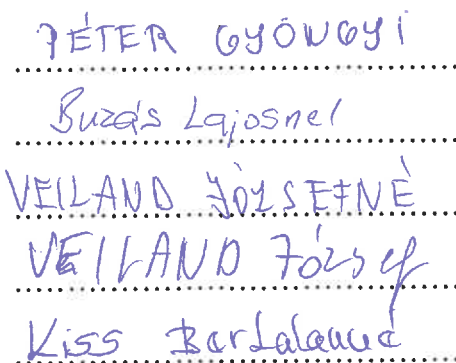 PÉTER GYÖNGYI
Buzás Lajosnel
VEILAND JÓZSEFNÉ
VEILAND József
Kiss Bertalanné